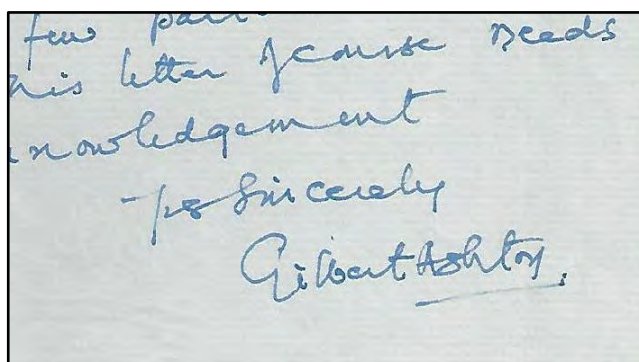 few
his letter of course needs
nowledgement
Yrs Sincerely
Gilbert Ashton.